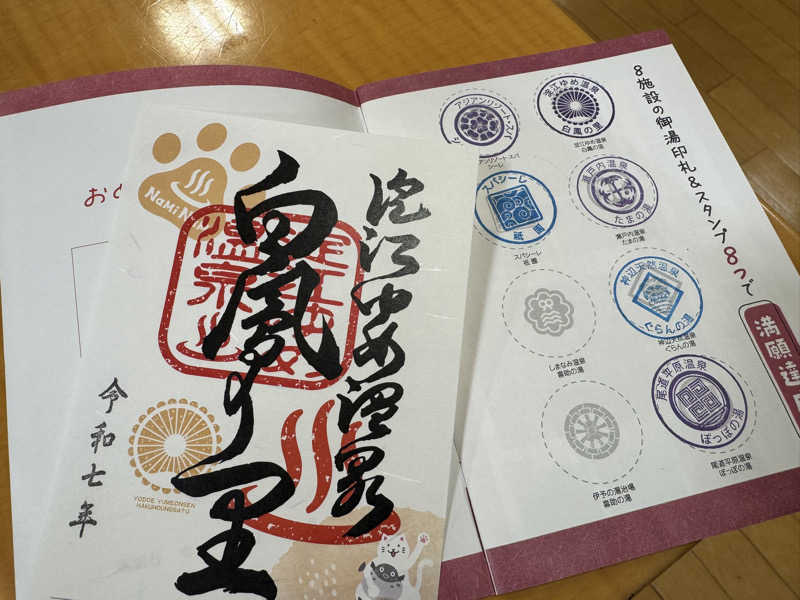 8施設の御湯印札&スタンプ8つで
満願達
淀江ゆめ温泉
白鳳の里
淀江ゆめ温泉
白鳳の里
アジアンリゾート・スパ
アジアンリゾート・スパ
シーレ
瀬戸内温泉
たまの湯
瀬戸内温泉
たまの湯
スパシーレ
祇園
スパシーレ
祇園
神辺天然温泉
ぐらんの湯
神辺天然温泉
ぐらんの湯
しまなみ温泉
喜助の湯
尾道平原温泉
ぽっぽの湯
尾道平原温泉
ぽっぽの湯
伊予の湯治場
喜助の湯
淀江ゆめ温泉
白鳳の里
令和七年
YODOE YUMEONSEN
HAKUHOUNOSATO